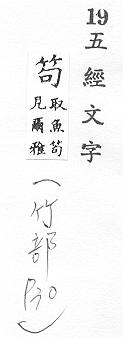 19五經文字
笱
取魚笱
見爾雅
(竹部 P30)